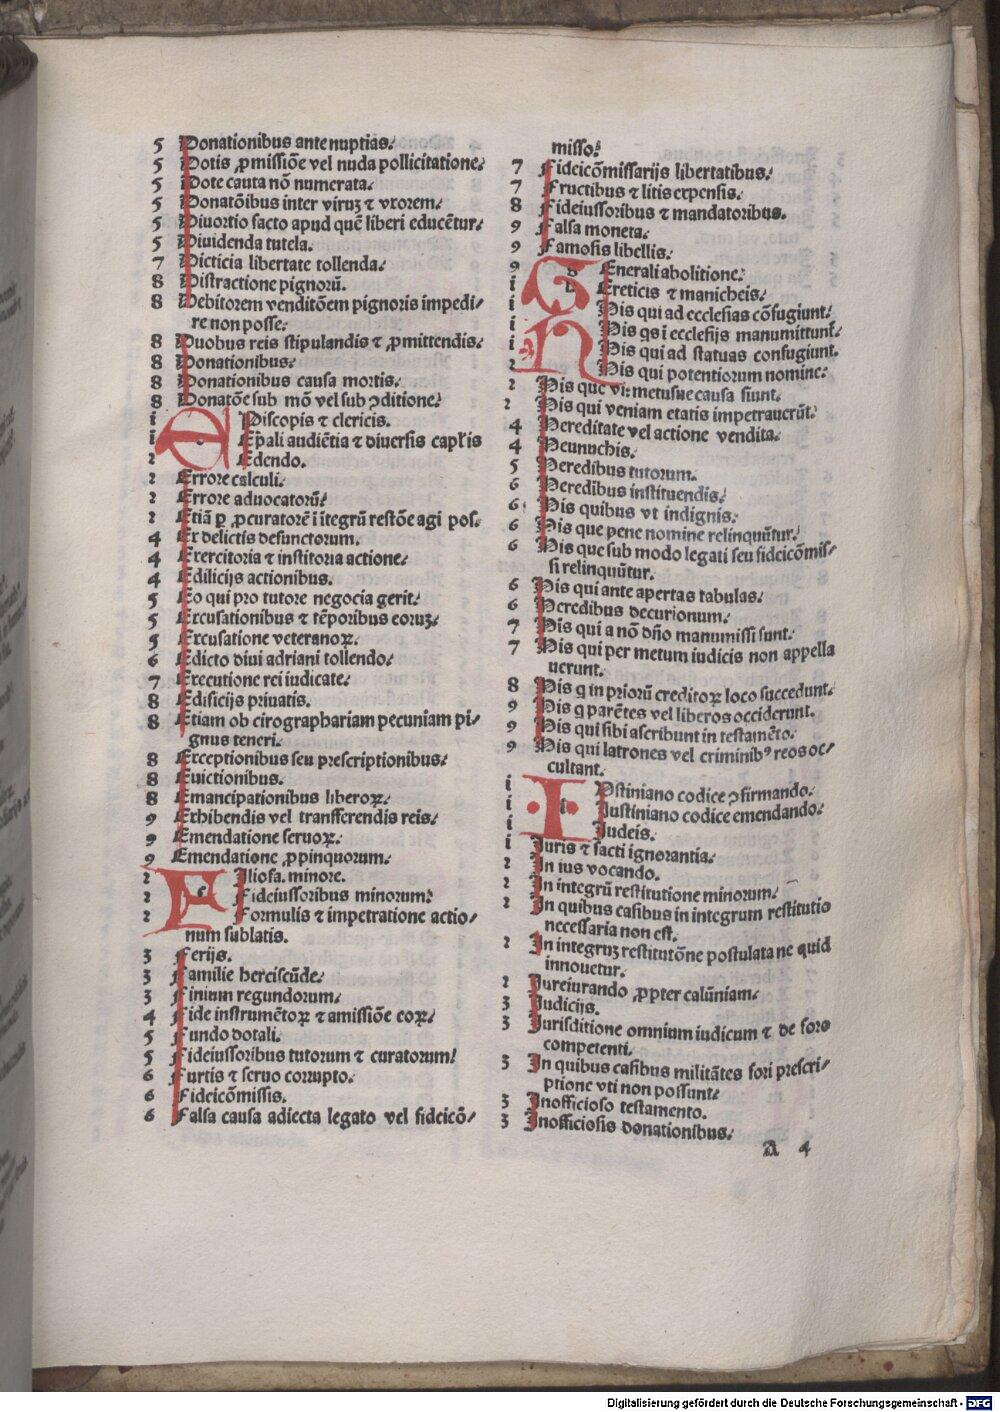 5 Donationibus ante nuptias.
5 Dotis ꝓmissiõe vel nuda pollicitatione.
5 Dote cauta nõ numerata.
5 Donatõibus inter viruꝫ ⁊ vxorem.
5 Diuortio facto apud quẽ liberi educẽtur.
5 Diuidenda tutela.
7 Dicticia libertate tollenda.
8 Distractione pignorũ.
8 Debitorem venditõem pignoris impedi/
re non posse.
8 Duobus reis stipulandis ⁊ ꝓmittendis.
8 Donationibus.
8 Donationibus causa mortis.
8 Donatõe sub mõ vel sub ꝯditione.
i E Piscopis ⁊ clericis.
i Ep̃ali audiẽtia ⁊ diuersis capl'is
2 Edendo.
2 Errore calculi.
2 Errore aduocatorũ.
2 Etiã ꝑ ꝓcuratorẽ ĩ ĩtegrũ restõe agi pos.
4 Ex delictis defunctorum.
4 Exercitoria ⁊ institoria actione.
4 Edilicijs actionibus.
5 Eo qui pro tutore negocia gerit.
5 Excusationibus ⁊ tẽporibus eoruꝫ.
5 Excusatione veteranoꝝ.
6 Edicto diui adriani tollendo.
7 Executione rei iudicate.
8 Edificijs priuatis.
8 Etiam ob cirographariam pecuniam pi/
gnus teneri.
8 Exceptionibus seu prescriptionibus.
8 Euictionibus.
8 Emancipationibus liberoꝝ.
9 Exhibendis vel transferendis reis.
9 Emendatione seruoꝝ.
9 Emendatione ꝓpinquorum.
2 F Iliofa. minore.
2 Fideiussoribus minorum.
2 Formulis ⁊ impetratione actio/
num sublatis.
3 Ferijs.
3 Familie herciscũde.
3 Finium regundorum.
4 Fide instrumẽtoꝝ ⁊ amissiõe eoꝝ.
5 Fundo dotali.
5 Fideiussoribus tutorum ⁊ curatorum.
6 Furtis ⁊ seruo corrupto.
6 Fideicõmissis.
6 Falsa causa adiecta legato vel fideicõ/
misso.
7 Fideicõmissarijs libertatibus.
7 Fructibus ⁊ litis expensis.
8 Fideiussoribus ⁊ mandatoribus.
9 Falsa moneta.
9 Famosis libellis.
9 G Enerali abolitione.
i H Ereticis ⁊ manicheis.
i His qui ad ecclesias cõfugiunt.
i His qs ĩ ecclesijs manumittunt'.
i His qui ad statuas confugiunt.
2 His qui potentiorum nomine.
2 His que vi: metusue causa fiunt.
2 His qui veniam etatis impetrauerũt.
4 Hereditate vel actione vendita.
4 Heunuchis.
5 Heredibus tutorum.
6 Heredibus instituendis.
6 His quibus vt indignis.
6 His que pene nomine relinquũtur.
6 His que sub modo legati seu fideicõmis/
si relinquũtur.
6 His qui ante apertas tabulas.
6 Heredibus decurionum.
7 His qui a nõ dño manumissi sunt.
7 His qui per metum iudicis non appella
uerunt.
8 His q in priorũ creditoꝝ loco succedunt.
9 His q parẽtes vel liberos occiderunt.
9 His qui sibi ascribunt in testamẽto.
9 His qui latrones vel criminibꝰ reos oc/
cultant.
i I Vstiniano codice ꝯfirmando.
i Iustiniano codice emendando.
i Iudeis.
i Iuris ⁊ facti ignorantia.
2 In ius vocando.
2 In integrũ restitutione minorum.
2 In quibus casibus in integrum restitutio
necessaria non est.
2 In integruꝫ restitutõne postulata ne quid
innouetur.
2 Iureiurando ꝓpter calũniam.
3 Iudicijs.
3 Iurisditione omnium iudicum ⁊ de foro
competenti.
3 In quibus casibus militãtes fori prescri/
ptione vti non possunt.
3 Inofficioso testamento.
3 Inofficiosis donationibus.
A 4
Digitalisierung gefördert durch die Deutsche Forschungsgemeinschaft - DFG